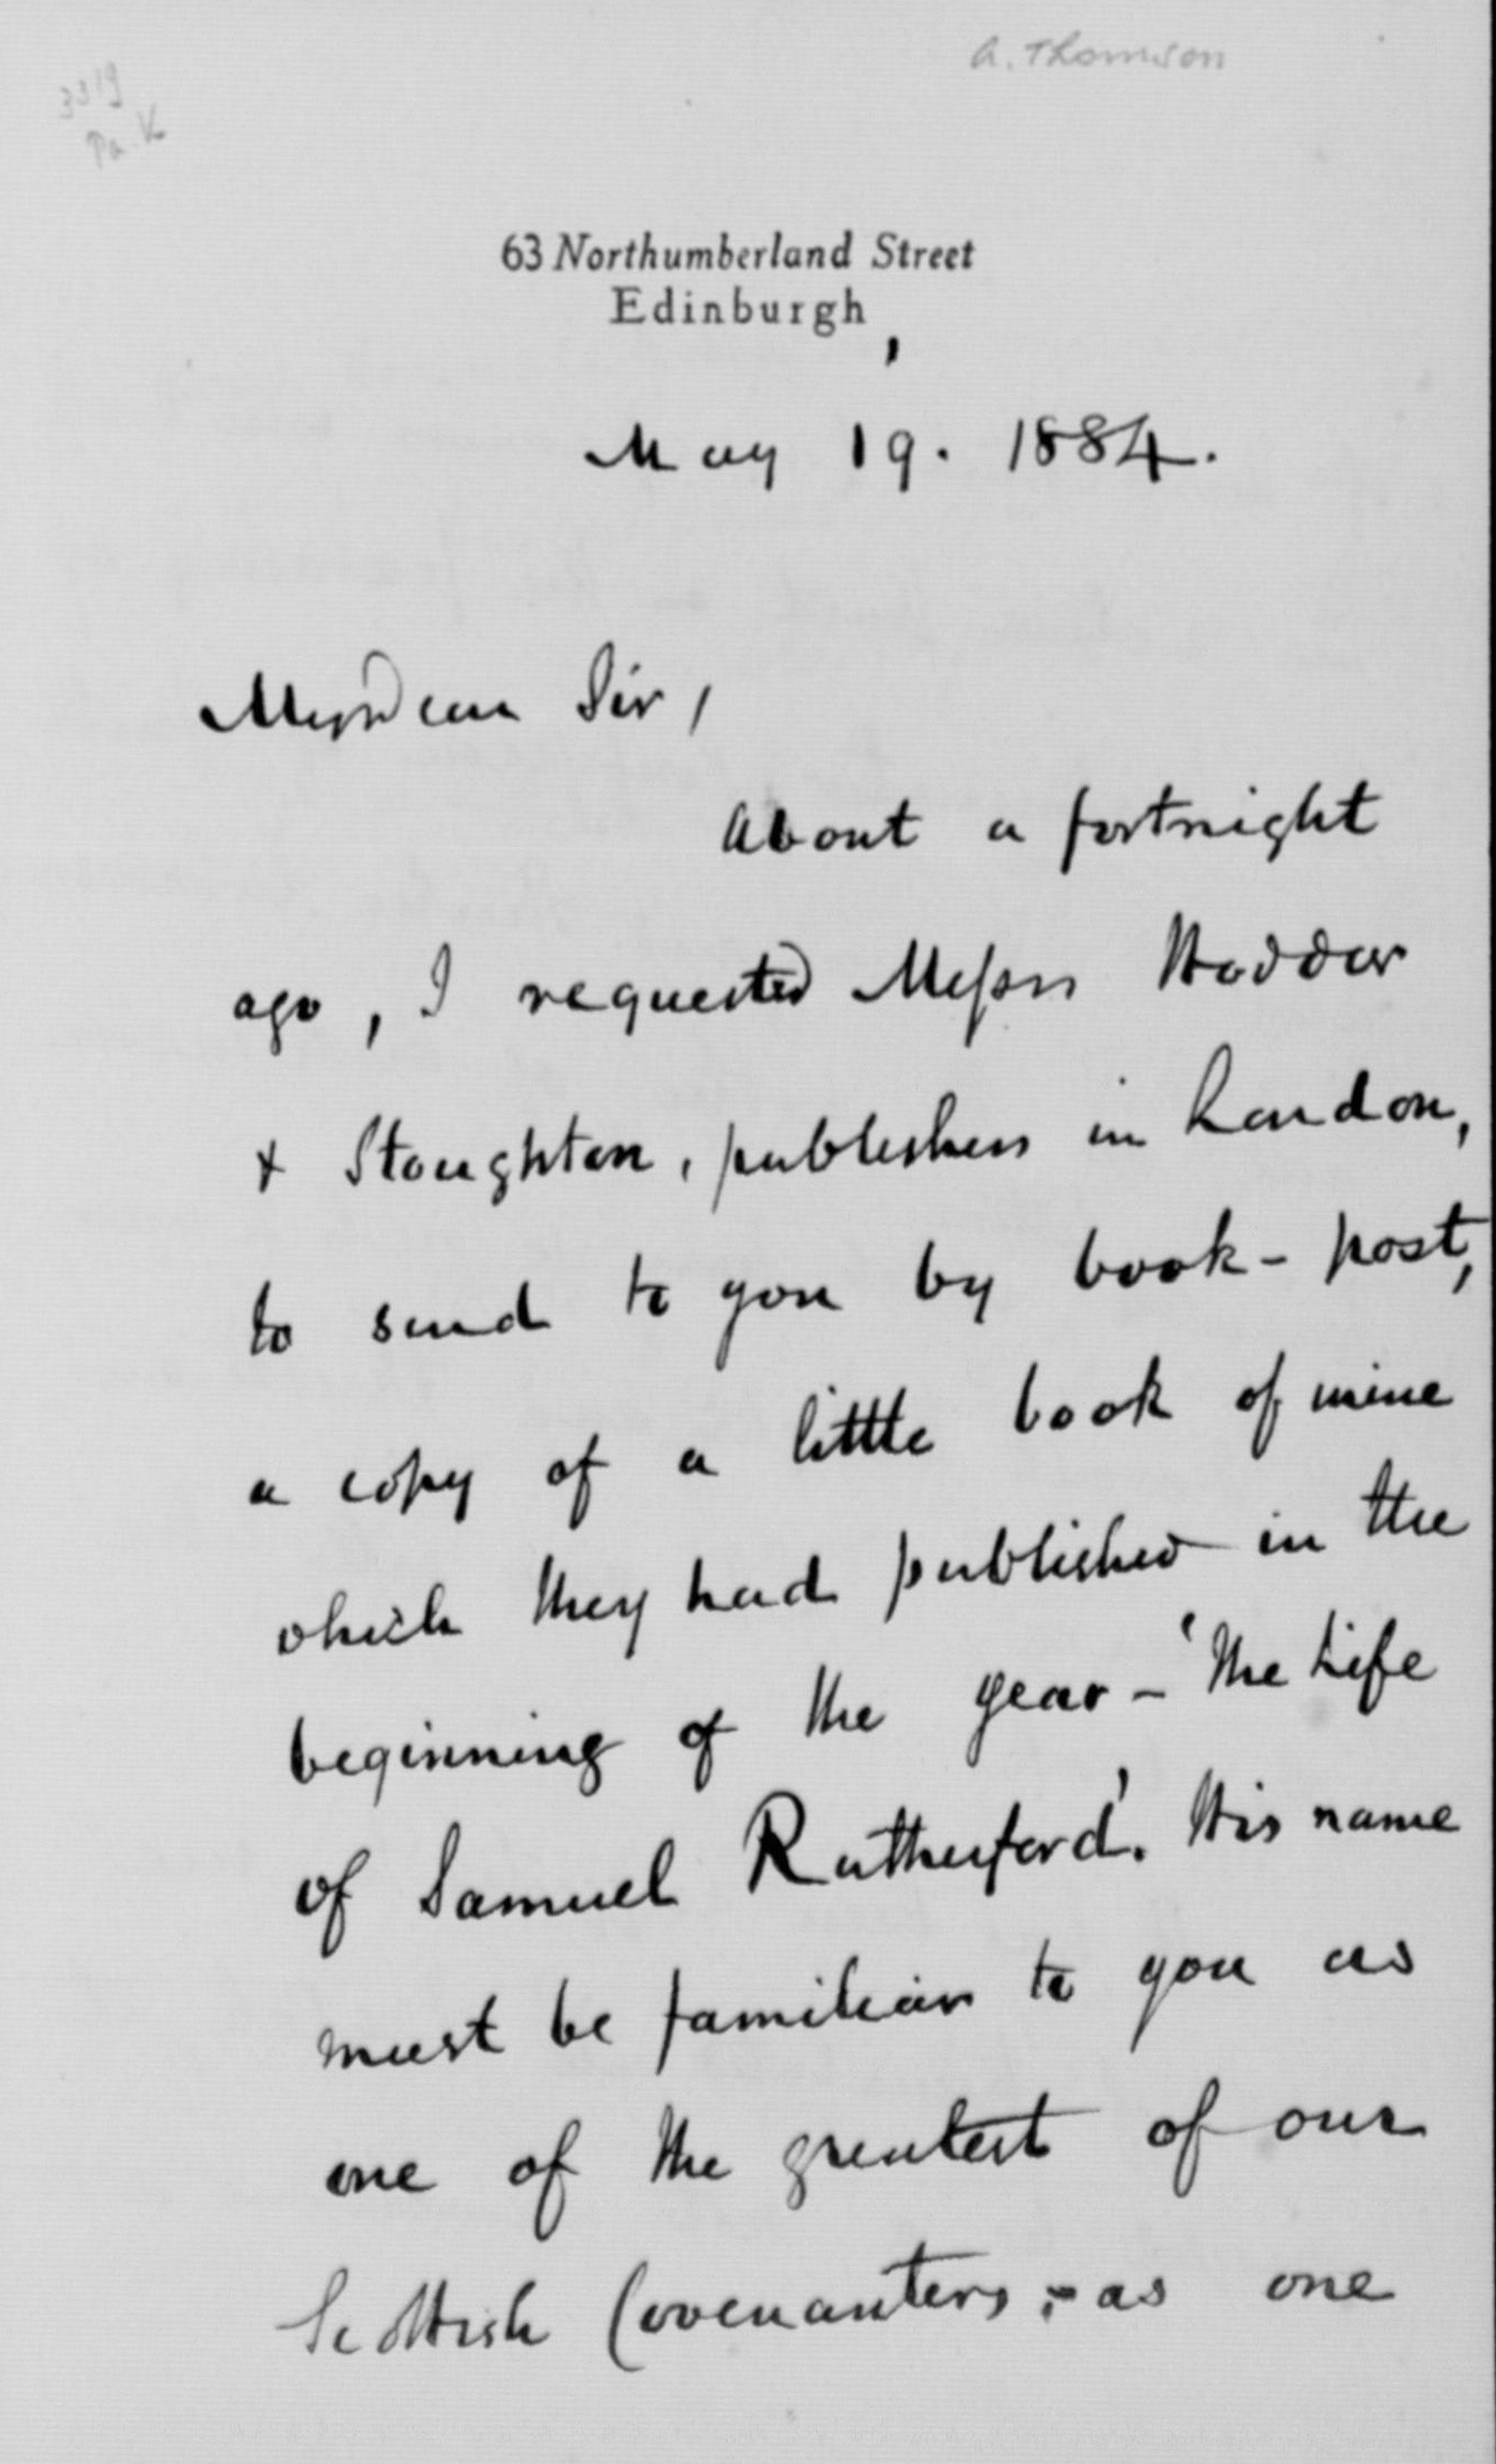 A. Thomson
3319
Pa. V
63 Northumberland Street
Edinburgh,
May 19. 1884.
My Dear Sir,
About a fortnight
ago, I requested Messrs Hodder
& Stoughton, publishers in London,
to send to you by book-post,
a copy of a little book of mine
which they had published in the
beginning of the year – 'The Life
of Samuel Rutherford'. His name
must be familiar to you as
one of the greatest of our
Scottish Covenanters; – as one